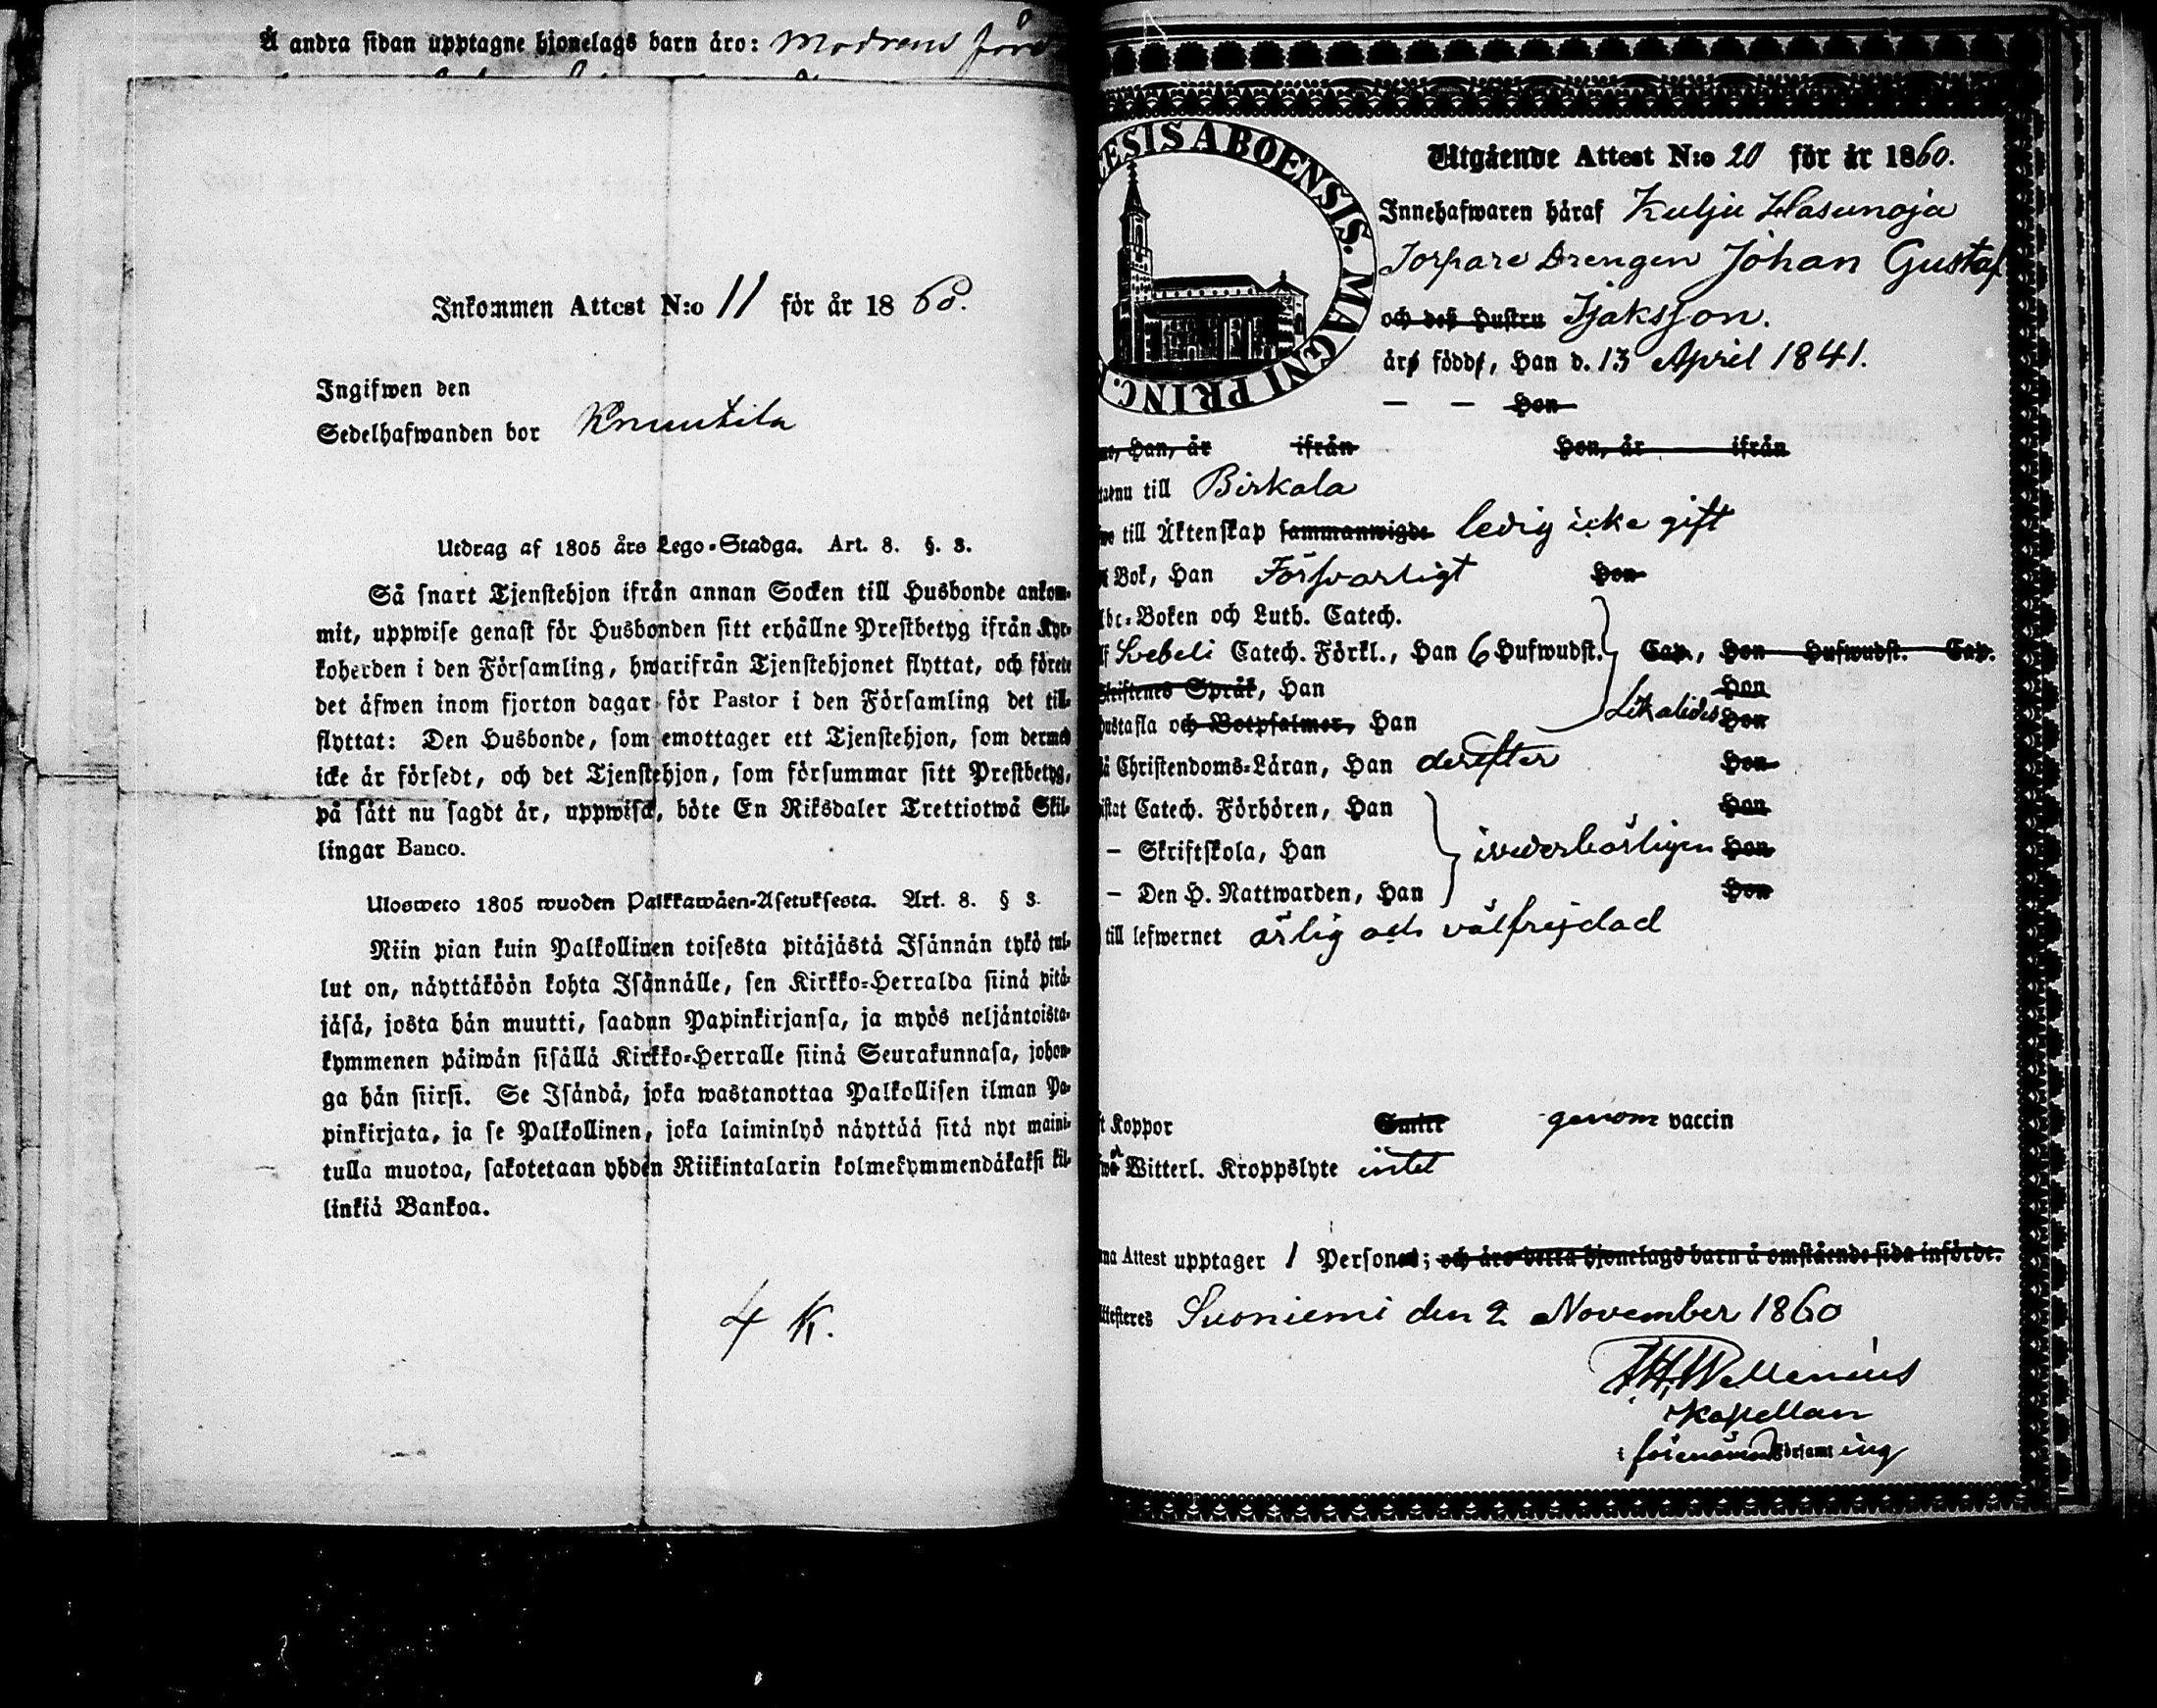 Å andra sidan upptagne hjonelags barn äro: Modrens
Inkommen Attest N:o 11 för år 1860.
Ingifwen den
Sedelhafwanden bor Knuutila
Utdrag af 1805 års Lego-Stadga. Art. 8. §. 3.
Så snart Tjenstehjon ifrån annan Socken till Husbonde ankom-
mit, uppwise genast för Husbonden sitt erhållne Prestbetyg ifrån Kyr-
koherden i den Församling, hwarifrån Tjenstehjonet flyttat, och förete
det äfwen inom fjorton dagar för Pastor i den Församling det till-
flyttat: Den Husbonde, som emottager ett Tjenstehjon, som dermed
icke är försedt, och det Tjenstehjon, som försummar sitt Prestbetyg,
på sätt nu sagdt är, uppwisa, böte En Riksdaler Trettiotwå Skil-
lingar Banco.
Ulosweto 1805 wuoden Palkkawäen-Asetuksesta. Art. 8. § 3.
Niin pian kuin Palkollinen toisesta pitäjästä Isännän tykö tul-
lut on, näyttäköön kohta Isännälle, sen Kirkko-Herralda siinä pitä-
jäsä, josta hän muutti, saadun Papinkirjansa, ja myös neljäntoista-
kymmenen päiwän sisällä Kirkko-Herralle siinä Seurakunnasa, johon-
ga hän siirsi. Se Isändä, joka wastanottaa Palkollisen ilman Pa-
pinkirjata, ja se Palkollinen, joka laiminlyö näyttää sitä nyt maini-
tulla muotoa, sakotetaan yhden Riikintalarin kolmekymmendäkaksi kil-
linkiä Bankoa.
4 K.
ESIS ABOENSIS. MAGNI PRINC.
Utgående Attest N:o 20 för år 1860.
Innehafwaren häraf Kulju Hasunoja
Torpare Drengen Johan Gustaf
och deß Hustru Isaksson.
äro födde, Han d. 13 April 1841.
— — Hon
Han, år ifrån Hon, år ifrån
till Birkala
till Äktenskap sammanwigde ledig icke gift
Bok, Han Försvarligt Hon
Abc-Boken och Luth. Catech.
Svebeli Catech. Förkl., Han 6 Hufwudst. Cap., Hon Hufwudst. Cap.
Skriftenes Språk, Han Hon
Hustafla och Botpsalmer, Han Likaledes Hon
Christendoms-Läran, Han derefter Hon
Catech. Förhören, Han Hon
— Skriftskola, Han Hon
— Den H. Nattwarden, Han Hon
till lefwernet ärlig och välfrejdad
Koppor Smitt genom vaccin
Witterl. Kroppslyte intet
Attest upptager 1 Personer; och äro detta hjonelags barn å omstående sida införde.
Suoniemi den 2 November 1860
Wallenius
Kapellan
i förenämnd Församling